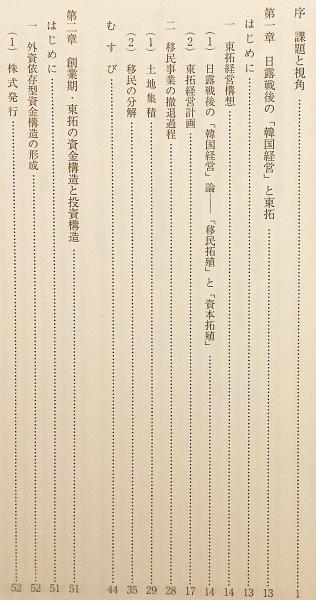 序 課題と視角 1
第一章 日露戦後の「韓国経営」と東拓 13
はじめに 13
一 東拓経営構想 14
(1) 日露戦後の「韓国経営」論 「移民拓殖」と「資本拓殖」 14
(2) 東拓経営計画 17
二 移民事業の撤退過程 28
(1) 土地集積 29
(2) 移民の分解 35
むすび 44
第二章 創業期・東拓の資金構造と投資構造 51
はじめに 51
一 外資依存型資金構造の形成 52
(1) 株式発行 52